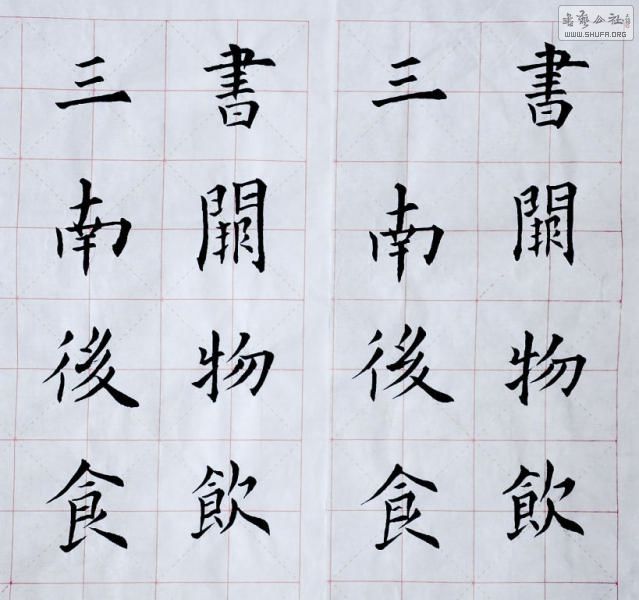 書物飲
三南後食
書物飲
三南後食
公社
WWW.SHUFA.ORG